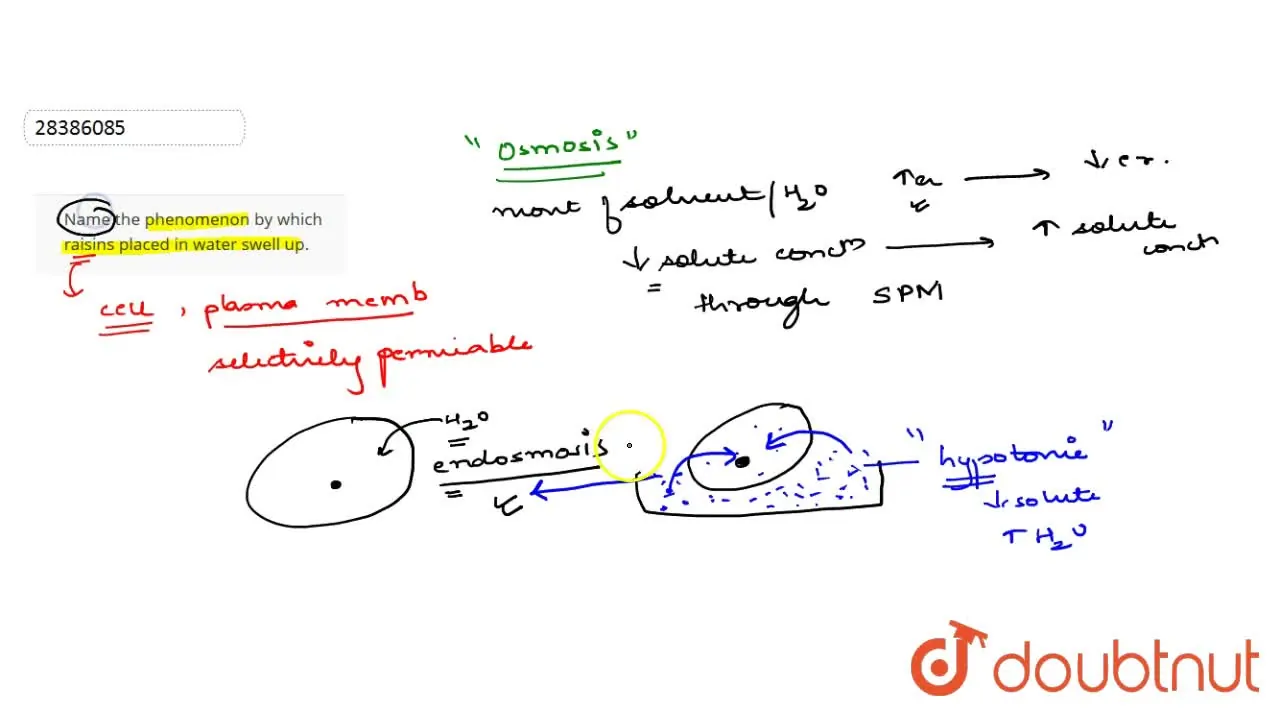 28386085
Name the phenomenon by which
raisins placed in water swell up.
cell, plasma memb
selectively permiable
"Osmosis"
movt of solvent/H2O ↑er → ↓er.
↓ solute concn → ↑ solute
concn
through SPM
H2O
endosmosis
"hypotonic"
↓ solute
↑ H2O
doubtnut